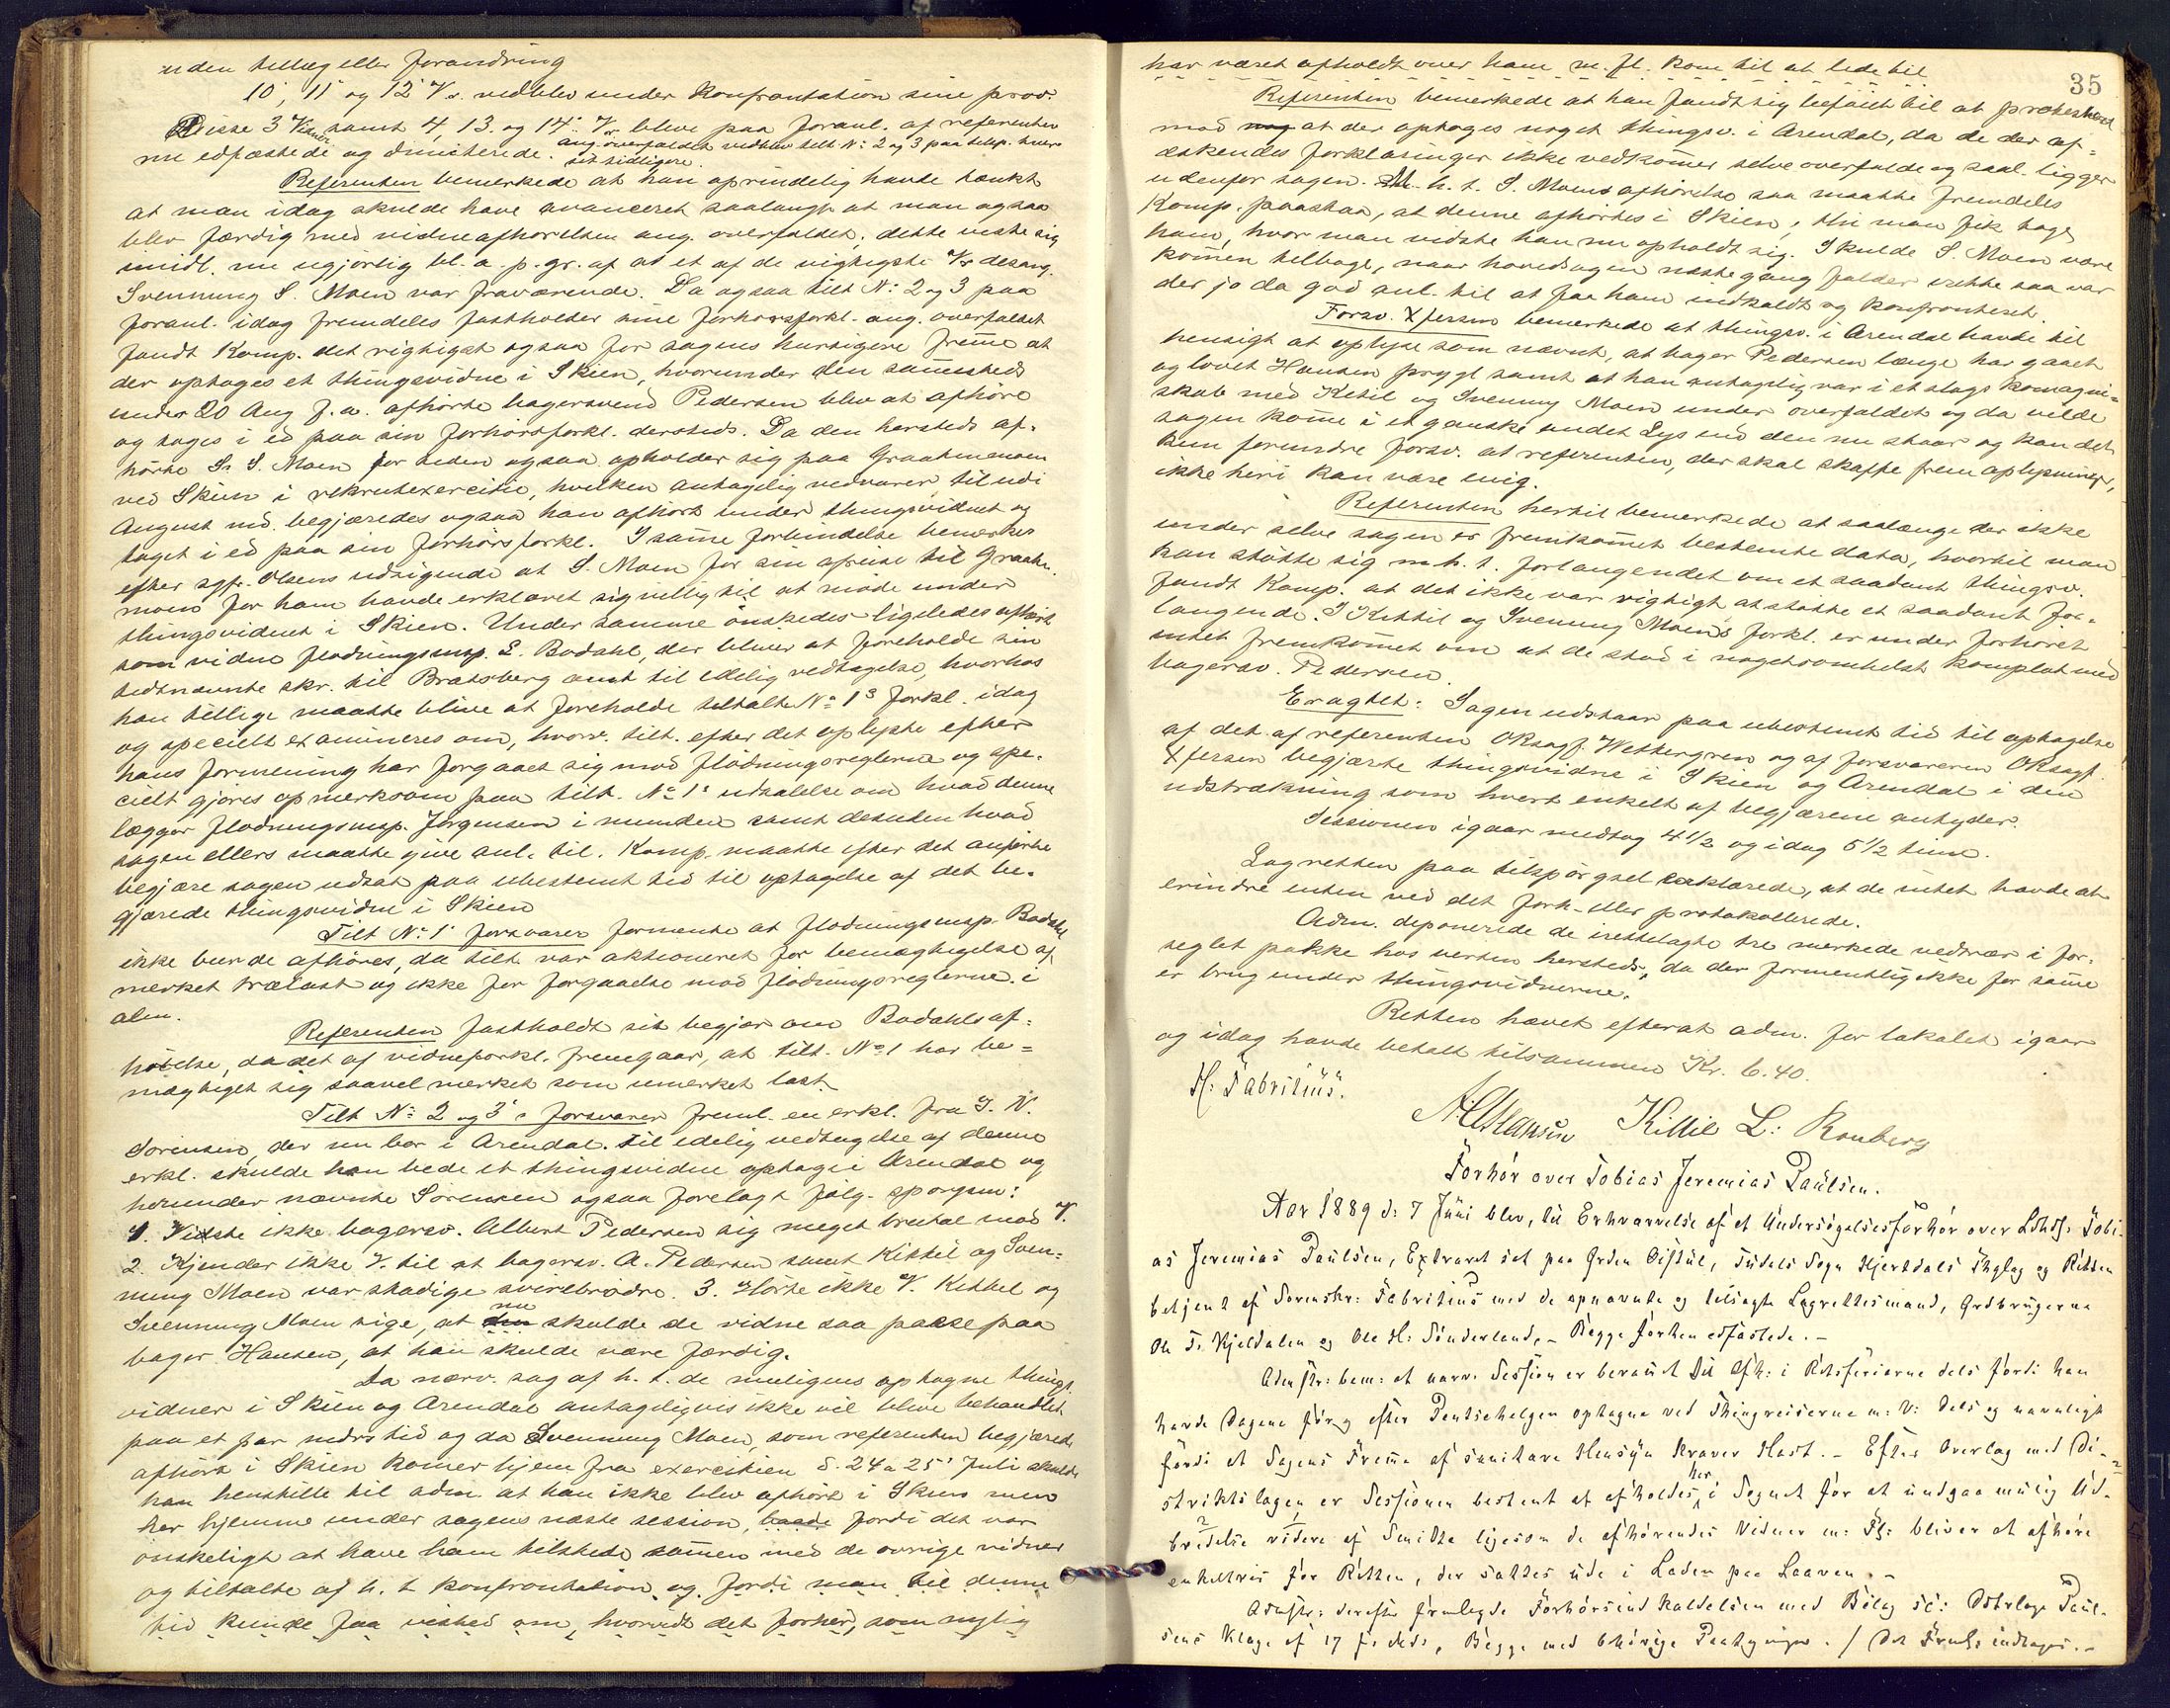 uden tillæg eller forandring
10', 11' og 12' V. vedblev under konfrontation sine prov.
Disse 3 Vidner samt 4, 13. og 14' V. bleve paa foranl. af referenten
ang. overfaldet vedblev tilt. No: 2 og 3 paa tilsp. hver
nu edfæstede og dimiterede. sit tidligere.
Referenten bemerkede at han oprindelig havde tænkt
at man idag skulde have avanceret saalangt at man ogsaa
blev færdig med vidneafhørelsen ang. overfaldet; dette viste sig
imidl. nu ugjørlig bl. a. p. gr. af at et af de vigtigste Vr desang.
Svennung S. Moen var fraværende. Da ogsaa tilt No: 2 og 3 paa
foranl. idag fremdeles fastholder sine forhørsforkl. ang. overfaldet
fandt Komp. det rigtigst ogsaa for sagens hurtigere fremme at
der optages et thingsvidne i Skien, hvorunder den sammesteds
under 20 Aug f. a. afhørte bagersvend Pedersen blev at afhøre
og tages i ed paa sin forhørsforkl. dersteds. Da den hersteds af-
hørte Sv. S. Moen for tiden ogsaa opholder sig paa Graatenmoen
ved Skien i rekrutexercitie, hvilken antagelig vedvarer til ud i
August md. begjæredes ogsaa han afhørt under thingsvidnet og
taget i ed paa sin forhørsforkl. I samme forbindelse bemerkes
efter sgf. Olsens udsigende at S. Moen før sin afreise til Graaten-
moen for ham havde erklæret sig villig til at møde under
thingsvidnet i Skien. Under samme ønskedes ligeledes afhørt
som vidne flødningsinsp. L. Bodahl, der bliver at foreholde sin
sidstnævnte skr. til Bratsberg amt til edelig vedtagelse, hvorhos
han tillige maatte blive at foreholde tiltalte No 1s forkl. idag
og specielt examineres om, hvorv. tilt. efter det oplyste efter
hans formening har forgaaet sig mod flødningsreglerne og spe-
cielt gjøres opmerksom paa tilt. No 1s udtalelse om hvad denne
lægger flødningsinsp. Jørgensen i munden samt desuden hvad
sagen ellers maatte give anl. til. Komp. maatte efter det anførte
begjære sagen udsat paa ubestemt tid til optagelse af det be-
gjærede thingsvidne i Skien
Tilt No: 1' forsvarer formente at flødningsinsp. Bodahl
ikke burde afhøres, da tilt. var aktioneret for bemægtigelse af
merket trælast og ikke for forgaaelse mod flødningsreglerne i
alm.
Referenten fastholdt sit begjær om Bodahls af-
hørelse, da det af vidneforkl. fremgaar, at tilt. No 1 har be-
mægtiget sig saavel merket som umerket last.
Tilt No: 2 og 3's forsvarer freml. en erkl. fra S. N.
Sørensen, der nu bor i Arendal. Til edelig vedtagelse af denne
erkl. skulde han bede et thingsvidne optaget i Arendal og
herunder nævnte Sørensen ogsaa forelagt følg. spørgsm:
1. Vidste ikke bagersv. Albert Pedersen sig meget brutal mod V.
2. Kjender ikke V. til at bagersv. A. Pedersen samt Kittil og Sven-
nung Moen var stadige svirebrødre. 3. Hørte ikke V. Kittil og
Svennung Moen sige, at nu skulde de vidne saa passe paa
bager Hansen, at han skulde være færdig.
Da nærv. sag af h. t. de muligens optagne things-
vidner i Skien og Arendal antageligvis ikke vil blive behandlet
paa et par mdrs tid og da Svennung Moen, som referenten begjærede
afhørt i Skien kommer hjem fra exercitien d. 24 a 25' Juli skulde
han henstille til adm. at han ikke blev afhørt i Skien men
her hjemme under sagens næste session, baade fordi det var
ønskeligt at have ham tilstede sammen med de øvrige vidner
og tiltalte af h. t. konfrontation og fordi man til denne
tid kunde faa vished om, hvorvidt det forhør, som nylig
35
har været afholdt over ham m. fl. kom til at lede til
Referenten bemerkede at han fandt sig beføiet til at protestere
mod at der optages noget thingsv. i Arendal, da de der af-
æskendes forklaringer ikke vedkommer selve overfaldet og saal. ligger
udenfor sagen. M. h. t. S. Moens afhørelse saa maatte fremdeles
Komp. paastaa, at denne afhørtes i Skien, thi man fik tage
ham, hvor man vidste han nu opholdt sig. Skulde S. Moen være
kommen tilbage, naar hovedsagen næste gang falder i rette saa var
der jo da god anl. til at faa ham indkaldt og konfronteret.
Forsv. Xfersen bemerkede at thingsv. i Arendal havde til
hensigt at oplyse som nævnt, at bager Pedersen længe har gaaet
og lovet Hansen prygl samt at han antagelig var i et slags kompagni-
skab med Kitil og Svennung Moen under overfaldet og da vilde
sagen komme i et ganske andet Lys end den nu staar og kan det
kun forundre forsv. at referenten, der skal skaffe frem oplysninger,
ikke heri kan være enig.
Referenten hertil bemerkede at saalænge der ikke
under selve sagen er fremkommet bestemte data, hvortil man
kan støtte sig m. h. t. forlangendet om et saadant thingsv.
fandt Komp. at det ikke var rigtigt at støtte et saadant for-
langende. I Kittil og Svennung Moens forkl. er under forhøret
intet fremkommet om at de stod i nogetsomhelst komplot med
bagersv. Pedersen.
Eragtet: Sagen udstaar paa ubestemt tid til optagelse
af det af referenten OKsagf. Wettergren og af forsvareren OKsagf.
Xfersen begjærte thingsvidne i Skien og Arendal i den
udstrækning som hvert enkelt af begjærene antyder.
Sessionen igaar medtog 4 1/2 og idag 5 1/2 time.
Lagretten paa tilspørgsel erklærede, at de intet havde at
erindre enten ved det forh. eller protokollerede.
Adm. deponerede de irettelagte tre merkede vedtrær i for-
seglet pakke hos verten hersteds, da der formentlig ikke for samme
er brug under thingsvidnerne.
Retten hævet efterat adm. for lokalet igaar
og idag havde betalt tilsammen Kr. 6.40.
H: Fabritius.
Kittil L: Ronberg
Forhør over Tobias Jeremias Paulsen.
Aar 1889 d: 7 Juni blev, til Erhvervelse af et Undersøgelsesforhør over Ldhdf: Tobi-
as Jeremias Paulsen, Extraret sat paa Grden Oistul, Tudals Sogn Hjertdals Thglag og Retten
betjent af Sorenskr: Fabritius med de opnævnte og tilsagte Lagrettesmænd, Grdbrugerne
Ole T. Kjeldalen og Ole H: Sønderland, – Begge førhen edfæstede. –
Admstr: bem: at nærv: Session er beramet til Afh: i Retsferierne dels fordi han
havde Dagene før og efter Pentsehelgen optagne ved Thingreiserne m: V: dels og navnligt
fordi at Sagens Fremme af sanitære Hensyn kræver Hast. – Efter Overlæg med Di-
striktslægen er Sessionen bestemt at afholdes her i Sognet for at undgaa mulig Ud-
bredelse videre af Smitte ligesom de afhørendes Vidner m: Fl: bliver at afhøre
enkeltvis for Retten, der sattes ude i Laden paa Laaven. –
Admstr: derefter fremlagde Forhørsindkaldelsen med Bilag sc: Distrlæge Paul-
sens Klage af 17 f: Mds, Begge med behørige Paategninger. / Det Fremls indtages. –